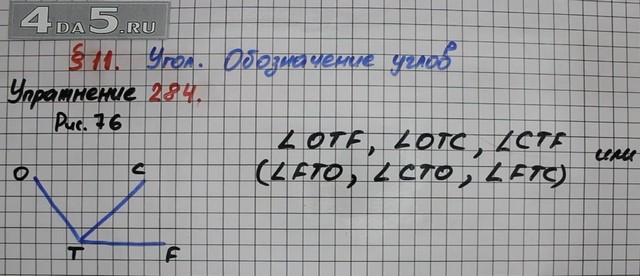 4DA5.RU
§ 11. Угол. Обозначение углов
Упражнение 284.
Рис. 76
∠OTF, ∠OTC, ∠CTF или
(∠FTO, ∠CTO, ∠FTC)
O C
T F